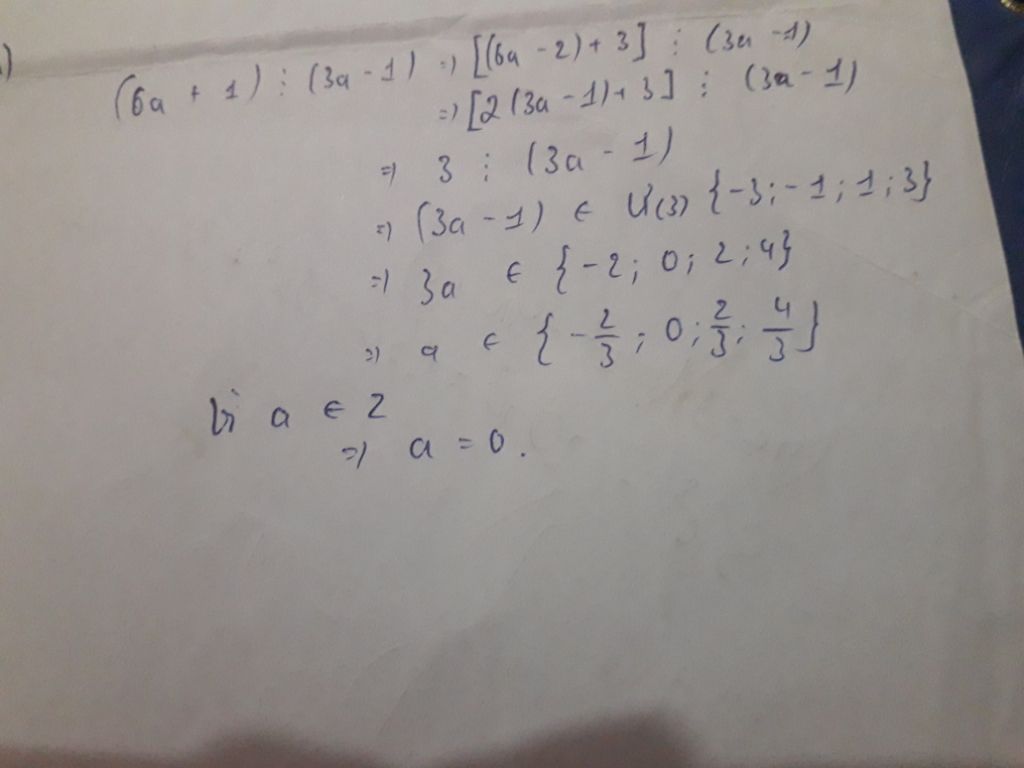 )
(6a + 1) ⋮ (3a - 1) => [(6a - 2) + 3] ⋮ (3a - 1)
=> [2(3a - 1) + 3] ⋮ (3a - 1)
=> 3 ⋮ (3a - 1)
=> (3a - 1) ∈ Ư(3) {-3; -1; 1; 3}
=> 3a ∈ {-2; 0; 2; 4}
=> a ∈ {-2/3; 0; 2/3; 4/3}
Vì a ∈ Z
=> a = 0.